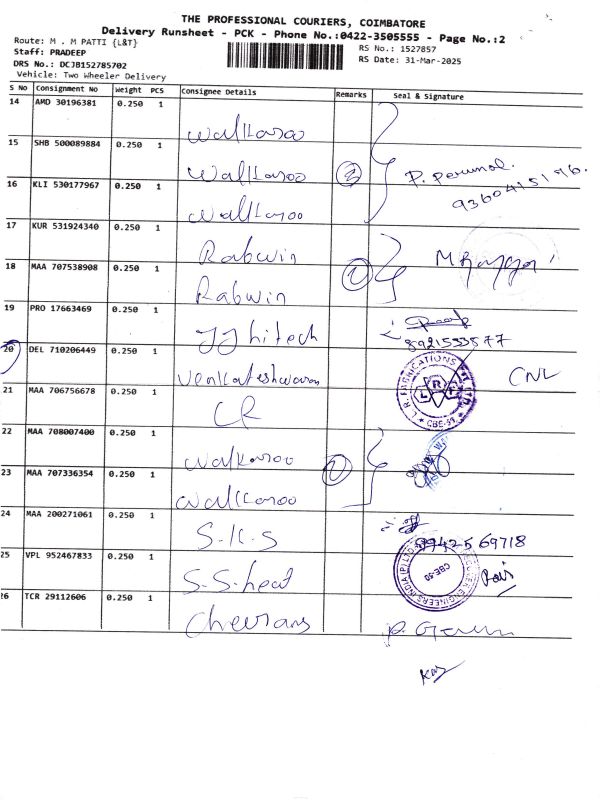 THE PROFESSIONAL COURIERS, COIMBATORE
Delivery Runsheet - PCK - Phone No.:0422-3505555 - Page No.:2
Route: M . M PATTI {L&T}
RS No.: 1527857
Staff: PRADEEP
RS Date: 31-Mar-2025
DRS No.: DCJB152785702
Vehicle: Two Wheeler Delivery
S No Consignment No Weight PCS Consignee Details Remarks Seal & Signature
14 AMD 30196381 0.250 1 Walkaroo
15 SHB 500089884 0.250 1 Walkaroo 3 P. Perumal.
9360415196.
16 KLI 530177967 0.250 1 Walkaroo
17 KUR 531924340 0.250 1 Rabwin
18 MAA 707538908 0.250 1 Rabwin
19 PRO 17663469 0.250 1 JJ hitech 8921533577
20 DEL 710206449 0.250 1 Venkateshwaran L.R. FABRICATIONS PVT. LTD. LRF CBE-59 CNL
21 MAA 706756678 0.250 1 CR
22 MAA 708007400 0.250 1 Walkaroo
23 MAA 707336354 0.250 1 Walkaroo
24 MAA 200271061 0.250 1 S.K.S 9942569718
25 VPL 952467833 0.250 1 S.S.heat ENGINEERS INDIA (P) LTD CBE-50
26 TCR 29112606 0.250 1 Cheerans